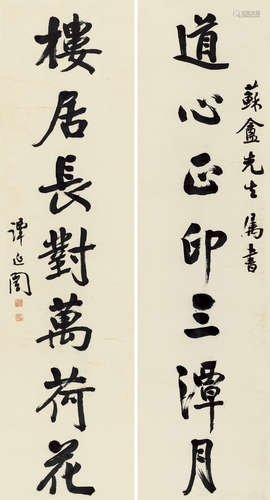 蘇盦先生屬書
道心正印三潭月
樓居長對萬荷花
譚延闓